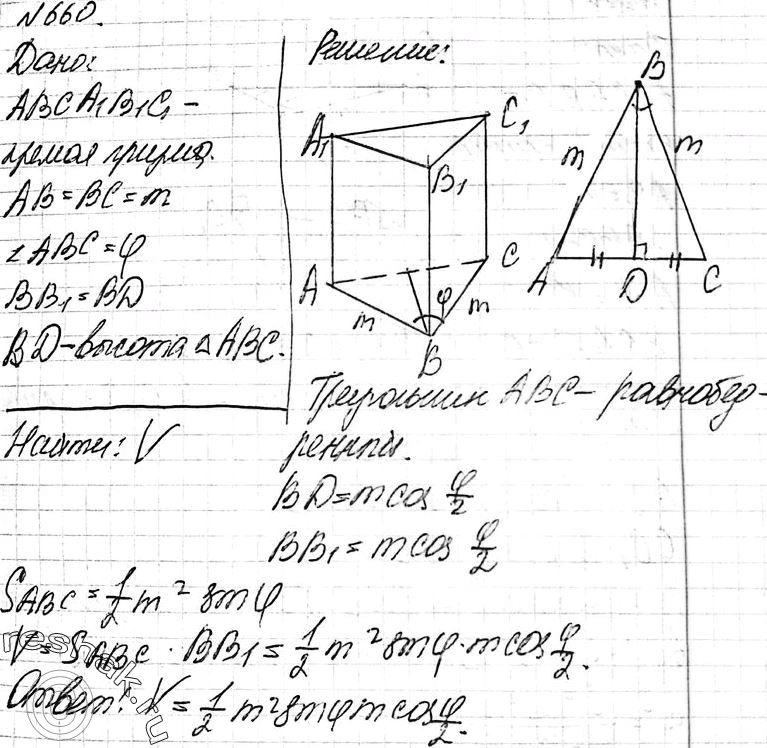 №660.
Дано:
ABCA₁B₁C₁ –
прямая призма.
AB=BC=m
∠ABC=φ
BB₁=BD
BD–высота △ABC.
Найти: V
Решение:
A₁
C₁
B₁
A
C
φ
m
m
B
B
m
m
A
D
C
Треугольник ABC– равнобед-
ренный.
BD=m cos φ/2
BB₁=m cos φ/2
S_ABC=1/2 m² sin φ
V=S_ABC · BB₁=1/2 m² sin φ · m cos φ/2.
Ответ: V=1/2 m² sin φ m cos φ/2.
reshak.ru